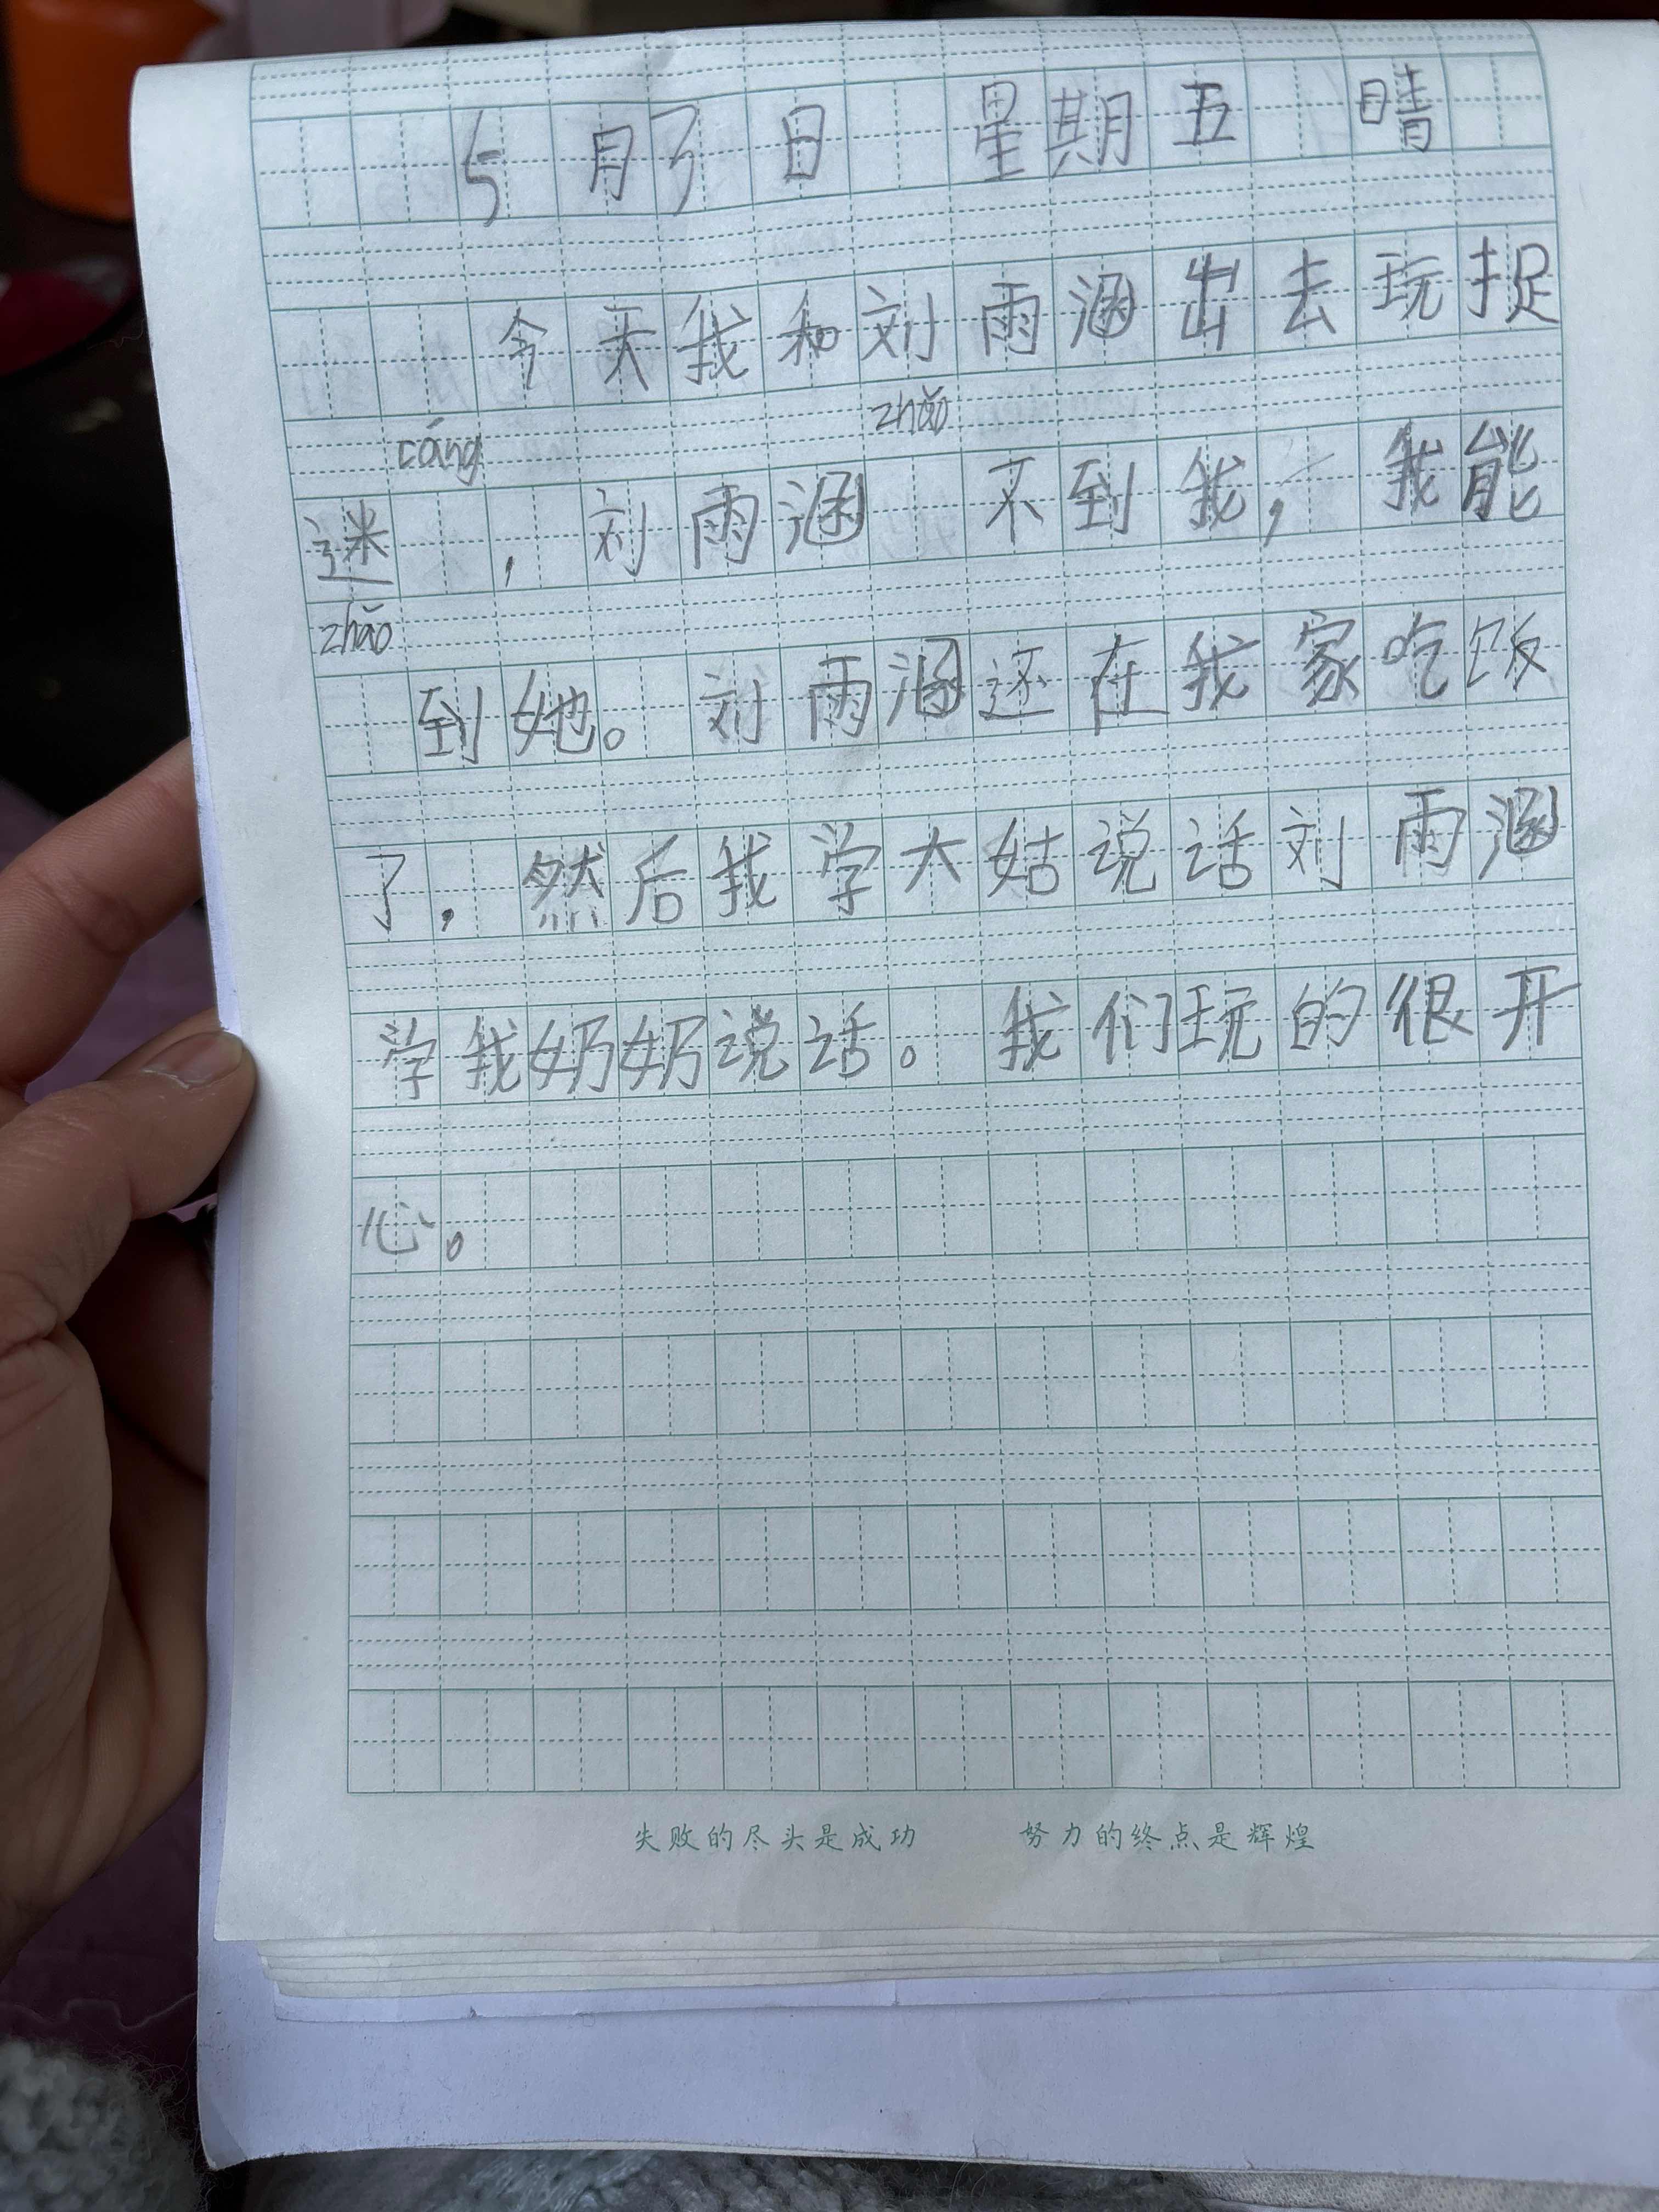 5月3日 星期五 晴
今天我和刘雨涵出去玩捉
cáng zhǎo
迷 ，刘雨涵 不到我，我能
zhǎo
到她。刘雨涵还在我家吃饭
了，然后我学大姑说话刘雨涵
学我奶奶说话。我们玩的很开
心。
失败的尽头是成功 努力的终点是辉煌